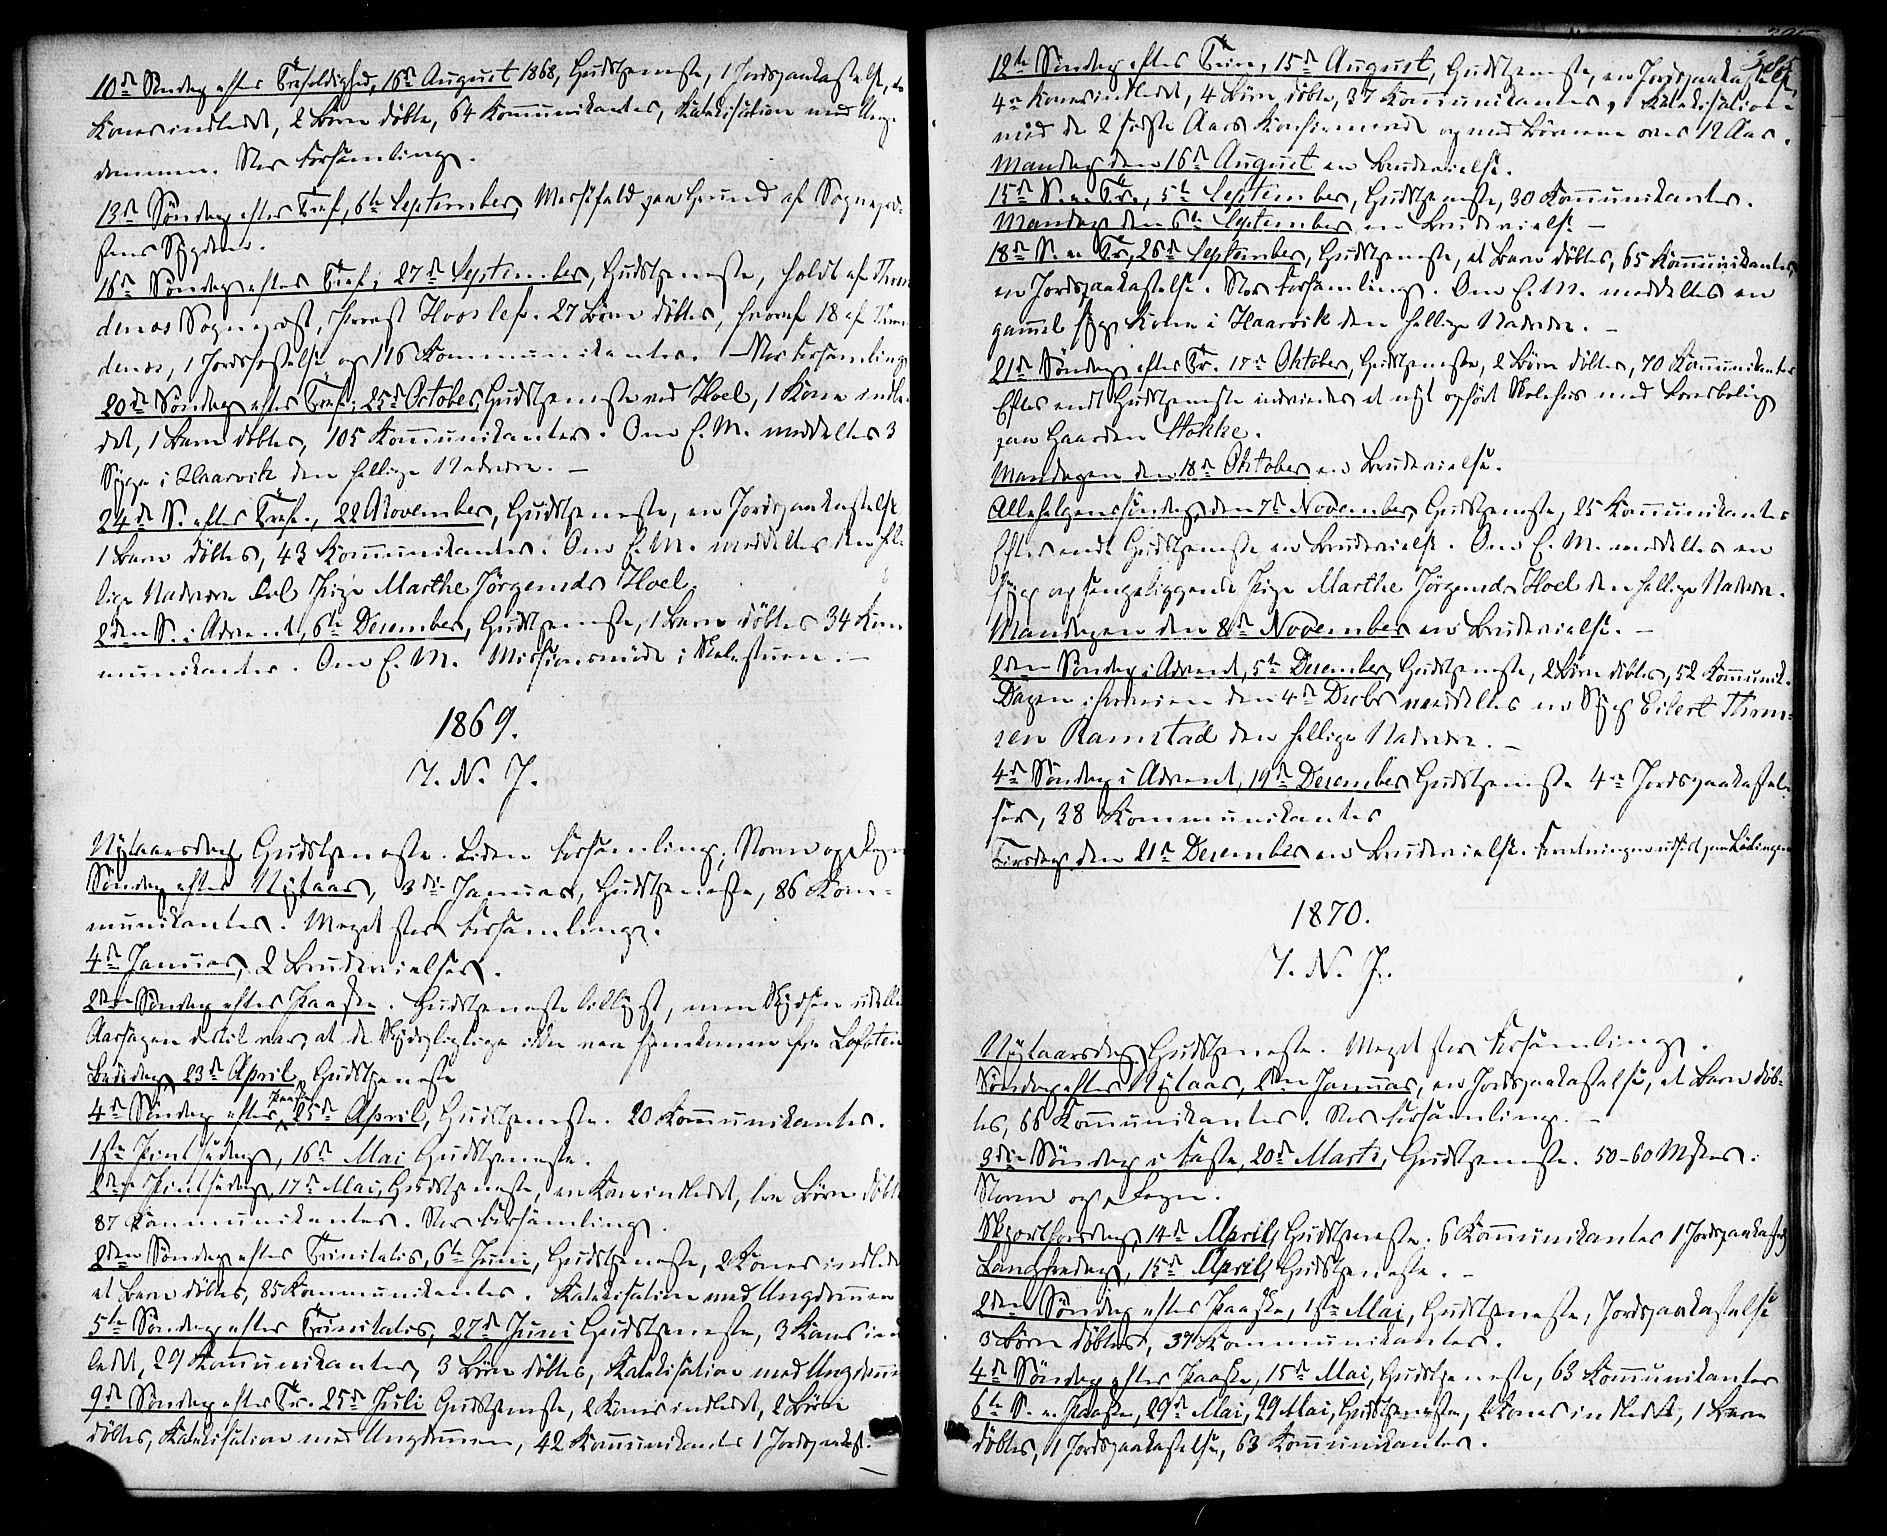 10de Søndag efter Trefoldighed, 16de August 1868, Gudstjeneste, 1 Jordspaakastelse, to
Koner indledet, 2 Børn døbte, 64 Kommunikanter, Katekisation med Ung-
dommen. Stor Forsamling.
13de Søndag efter Tref, 6te September, Messefald paa Grund af Sognepræ-
stens Sygdom.
16de Søndag efter Tref, 27de September, Gudstjeneste, holdt af
Sognepræst, Provst 27 Børn døbtes, hvoraf 18 af
1 Jordfæstelse og 116 Kommunikanter. Stor Forsamling
20de Søndag efter Tref. 25de October, Gudstjeneste ved Hoel, 1 Kone indle-
det, 1 Barn døbtes, 105 Kommunikanter. Om E. M. meddeltes 3
Syge i Haarvik den hellige Nadvere. —
24de S. efter Tref., 22 November, Gudstjeneste, en Jordspaakastelse
1 Barn døbtes, 43 Kommunikanter. Om E. M. meddeltes den hel-
lige Nadvere Pige Marthe Jörgensds Hoel
2den S. i Advent, 6te December, Gudstjeneste, 1 Barn döbtes 34 Kom
munikanter. Om E. M. Missionsmöde i Skolestuen. —
1869.
I. N. J.
Nytaarsdag, Gudstjeneste. Liden Forsamling; Storm og
Søndag efter Nytaar, 3die Januar, Gudstjeneste, 86 Kom-
munikanter. Meget stor Forsamling.
4de Januar, 2 Brudevielser.
2den Søndag efter Paaske. Gudstjeneste men Skydsen udeblev
Aarsagen dertil var, at de Skydspligtige ikke var hjemkomne fra Lofoten
Bededag, 23de April, Gudstjeneste
4de Søndag efter Paaske 25de April, Gudstjeneste. 20 Kommunikanter.
1ste Pintsedag, 16de Mai Gudstjeneste.
2den Pintsedag, 17de Mai, Gudstjeneste, en Kone indledet, Børn døbte
87 Kommunikanter. Stor Forsamling.
2den Søndag efter Trinitatis, 6te Juni, Gudstjeneste, 2 Koner indledet
et Barn døbtes, 85 Kommunikanter. Katekisation med Ungdommen
5te Søndag efter Trinitatis, 27de Juni Gudstjeneste, 3 Koner ind
ledet, 29 Kommunikanter, 3 Børn døbtes, Katekisation med Ungdommen
9de Søndag efter Tr. 25de Juli Gudstjeneste, 2 Koner indledet, 2 Børn
döbtes, Katekisation med Ungdommen, 42 Kommunikanter 1 Jordspaakast.
12te Søndag efter Trin, 15de August, Gudstjeneste, en Jordspaakastelse,
4re Koner indledet, 4 Børn døbte, 37 Kommunikanter, Katekisation
med de 2 sidste Aars Konfirmerede og med Børnene over 12 Aar.
Mandag den 16de August en Brudevielse.
15de S. e. Tr, 5te September, Gudstjeneste, 30 Kommunikanter.
Mandag den 6te September en Brudevielse —
18de S. e. Tr, 26de September, Gudstjeneste, et Barn døbtes, 65 Kommunikanter,
en Jordspaakastelse. Stor Forsamling. Om E. M. meddeltes en
gammel syg Kone i Haarvik den hellige Nadvere. —
21de Søndag efter Tr. 17de Oktober, Gudstjeneste, 2 Børn døbtes, 70 Kommunikanter
Efter endt Gudstjeneste indviedes et nyt opført Skolehus med Lærerbolig
paa Gaarden Stokke.
Mandagen den 18de Oktober en Brudevielse.
Allehelgenssöndag, den 7de November, Gudstjeneste, 25 Kommunikanter
Efter endt Gudstjeneste en Brudevielse. Om E. M. meddeltes en
syg og sengeliggende Pige Marthe Jörgensd. Hoel den hellige Nadvere.
Mandagen den 8de November en Brudevielse. —
2den Søndag i Advent, 5te December, Gudstjeneste, 2 Børn døbtes, 52 Kommunik.
Dagen iforveien den 4de Decbr meddeltes en Syg Eilert Thom-
sen Ramstad den hellige Nadvere. —
4de Søndag i Advent, 19de December Gudstjeneste 4re Jordspaakastel-
ser, 38 Kommunikanter
Tirsdag den 21de December en Brudevielse.
1870.
I. N. J.
Nytaarsdag Gudstjeneste. Meget stor Forsamling.
Søndag efter Nytaar, 2den Januar, en Jordspaakastelse, et Barn døb-
tes, 66 Kommunikanter. Stor Forsamling. —
3die Søndag i Faste, 20de Marts, Gudstjeneste. 50-60 Msker.
Storm og Regn.
Skjærthorsdag, 14de April, Gudstjeneste. 6 Kommunikanter 1 Jordspaakastelse
Langfredag, 15de April, Gudstjeneste. —
2den Søndag efter Paaske, 1ste Mai, Gudstjeneste, Jordspaakastelse
3 Børn döbtes, 37 Kommunikanter.
4de Søndag efter Paaske, 15de Mai, Gudstjeneste, 63 Kommunikanter
6te S. e. Paaske, 29de Mai, 29 Mai, Gudstjeneste, 2 Koner indledet, 1 Barn
döbtes, 1 Jordspaakastelse, 63 Kommunikanter.